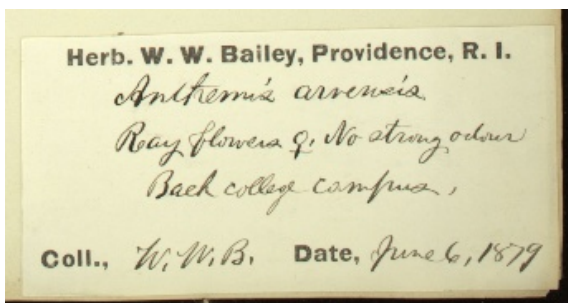 Herb. W. W. Bailey, Providence, R. I.
Anthemis arvensis
Ray flowers ♀. No strong odour
Back college campus.
Coll., W. W. B. Date, June 6, 1879